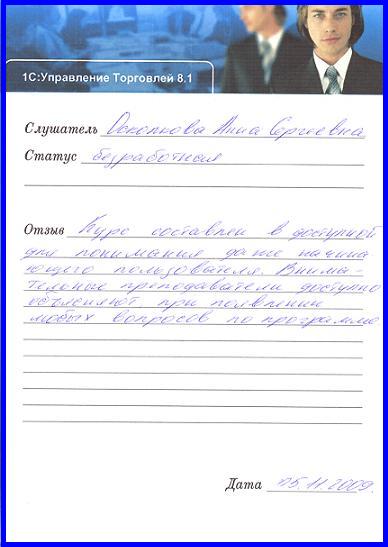 1С:Управление Торговлей 8.1
Слушатель Анна Сергеевна
Статус безработная
Отзыв Курс составлен в доступной
для понимания даже начина
ющего пользователя. Внима-
тельные преподаватели доступно
объясняют, при появлении
любых вопросов по программе
Дата 25.11.2009